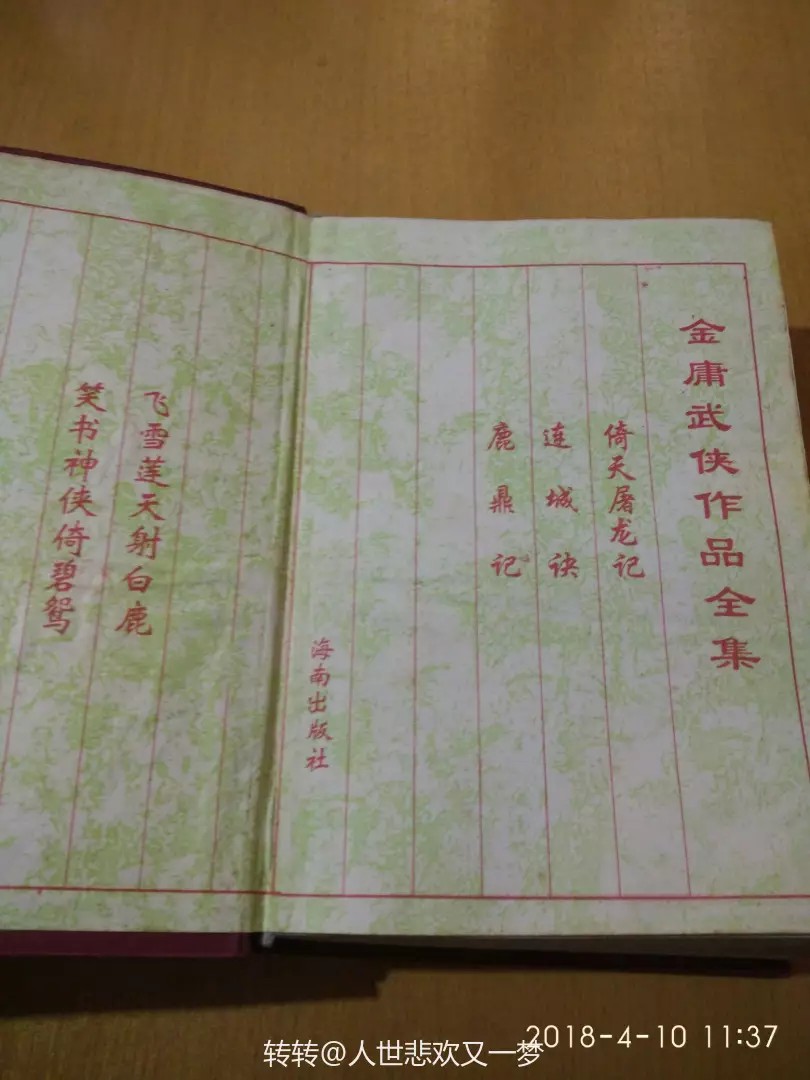 金庸武侠作品全集
倚天屠龙记
连城诀
鹿鼎记
海南出版社
飞雪莲天射白鹿
笑书神侠倚碧鸳
2018-4-10 11:37
转转@人世悲欢又一梦